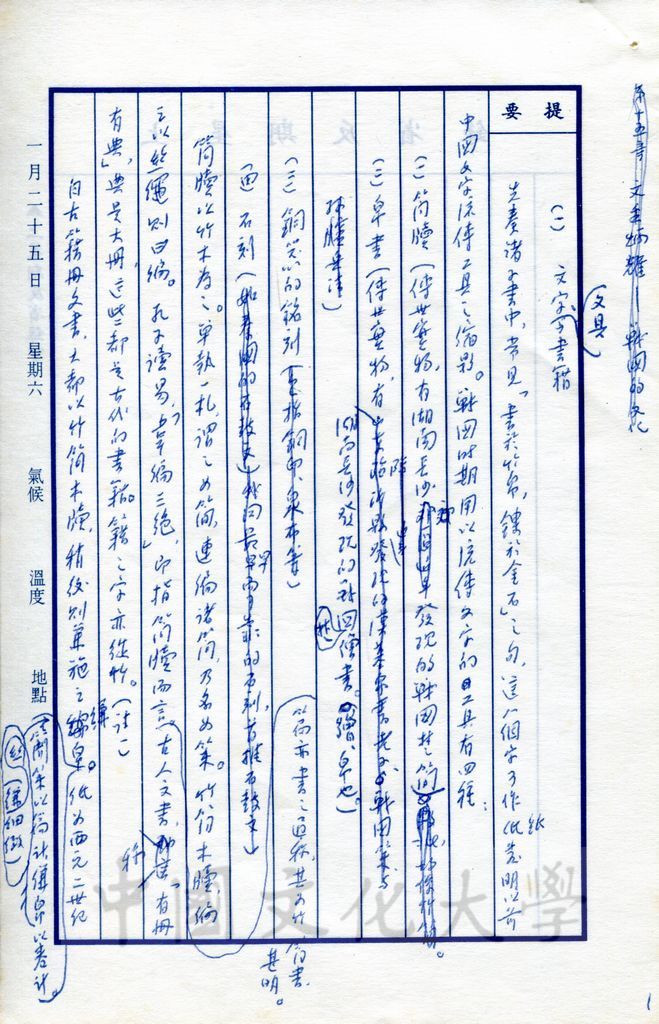 第十五章 文采炳耀—戰國的文化
提要
(一) 文字、書籍
(文具)
先秦諸子書中,常見「書於竹帛,鏤於金石」之句,這八個字可作紙發明以前
中國文字流傳工具之縮影。戰國時期用以流傳文字的工具有四種:
(一) 簡牘(傳世實物,有湖南長沙 發現的戰國楚簡
(二) 帛書(傳世實物,有
湖南長沙發現的 繒書。繒,帛也。)
孫臏兵法)
(三) 銅器的銘刻(包括銅印、泉布等)
篇亦書之通稱,其為竹簡書甚明。
(四) 石刻(如秦國的石鼓文)我國最早而可靠的石刻,首推石鼓文)
簡牘以竹木為之。單執一札謂之為簡,連編諸簡,乃名為策。竹簡木牘編
之以絲繩則曰編。孔子讀易,「韋編三絕」,即指簡牘而言。古人文書, 「有冊
有典」,典是大冊,這些都是古代的書籍。籍之字亦從竹。(註一)
自古籍冊文書,大都以竹簡木牘,稍後則兼施之縑帛。紙為西元二世紀
(簡策以篇計,縑帛以卷計。
絲(縑細緻)
一月二十五日 星期六 氣候 溫度 地點
中國文化大學
1